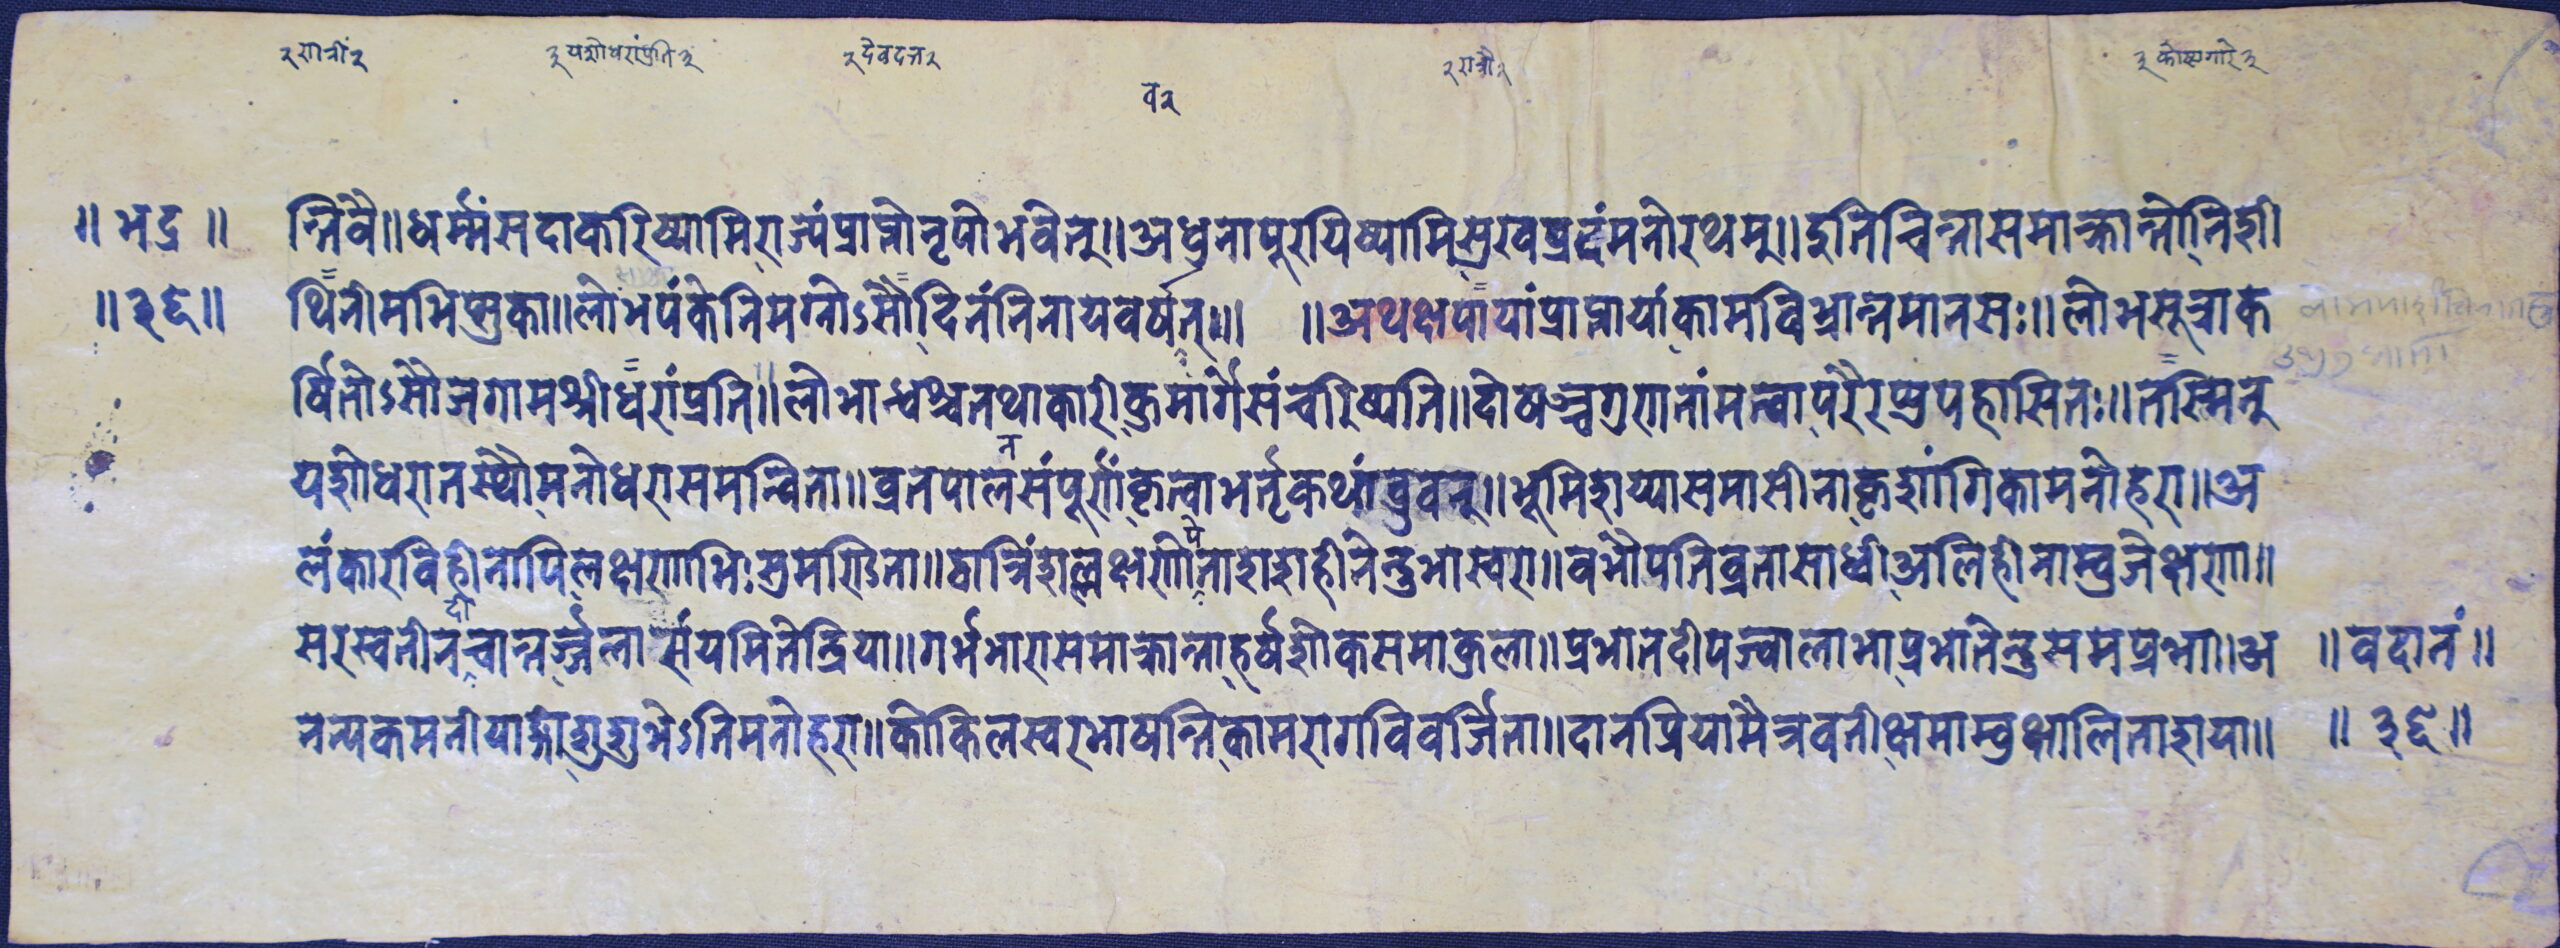 २ रात्रीं २ ३ यशोधरांप्रति ३ २ देवदत्त २ २ रात्रौ २
व २
॥ भद्र ॥ न्निवै॥ धर्म्मंसदाकरिष्यामिराज्यंप्राप्तोनृपोभवेत्॥ अधुनापूरयिष्यामिसुखप्रदंमनोरथम्॥ इतिचिन्तासमाक्रान्तोनिशी
॥ ३६ ॥ थिनीमभिप्सुका॥ लोभपंकेनिमग्नोऽसौदिनंनिनायवर्षत्॥ ॥ अथक्षपायांप्राप्तायांकामविभ्रान्तमानसः॥ लोभसूत्राक
र्षितोऽसौजगामश्रीधरांप्रति॥ लोभान्धश्चतथाकारीकुमार्गैसंचरिष्यति॥ दोषञ्चगुणानांमत्वापरैरप्युपहासितः॥ तस्मिन्
यशोधरातस्थौमनोधरासमन्विता॥ व्रतपालनसंपूर्णांकृत्वाभर्तृकथांब्रुवन्॥ भूमिशय्यासमासीनाकृशांगिकामनोहरा॥ अ
लंकारविहीनापिलक्षणाभिःसुमण्डिता॥ द्वात्रिंशल्लक्षणोपेताशशहीनेन्दुभास्वरा॥ वभौपतिव्रतासाध्वीअलिहीनाम्बुजेक्षणा॥
सरस्वतीनदीचान्तर्ज्जलासंयमितेन्द्रिया॥ गर्भभारासमाक्रान्ताहर्षशोकसमाकुला॥ प्रभातदीपज्वालाभाप्रभातेन्दुसमप्रभा॥ अ ॥ वदानं ॥
नन्यकमनीयाङ्गीशुशुभेऽतिमनोहरा॥ कोकिलस्वरभाषन्तिकामरागविवर्जिता॥ दानप्रियामैत्रवतीक्षमाम्बुक्षालिताशया॥ ॥ ३६ ॥